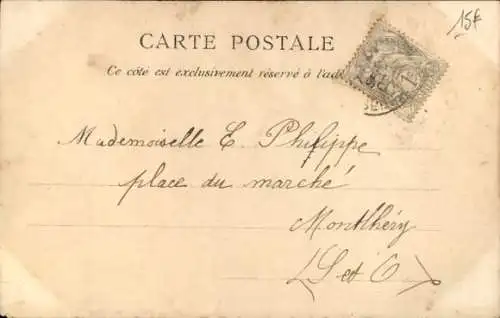 15f
CARTE POSTALE
Ce côté est exclusivement réservé à l'ad
Mademoiselle E. Philippe
place du marché
Montlhéry
(S et O)